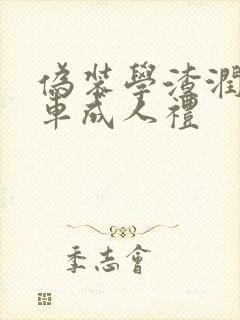 偽裝學渣潤
車成人禮
季志會